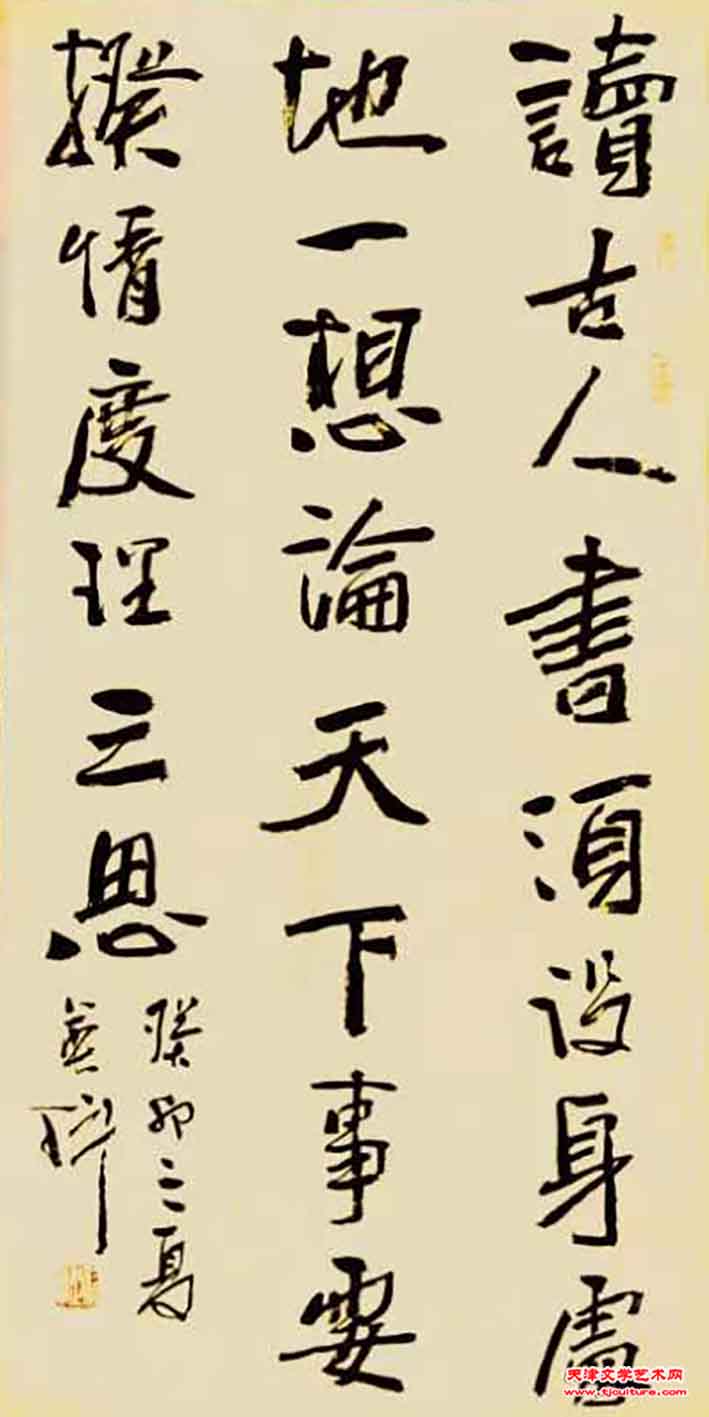 讀古人書須設身處
地一想論天下事要
揆情度理三思
癸卯之夏
天津文学艺术网
www.tjculture.com